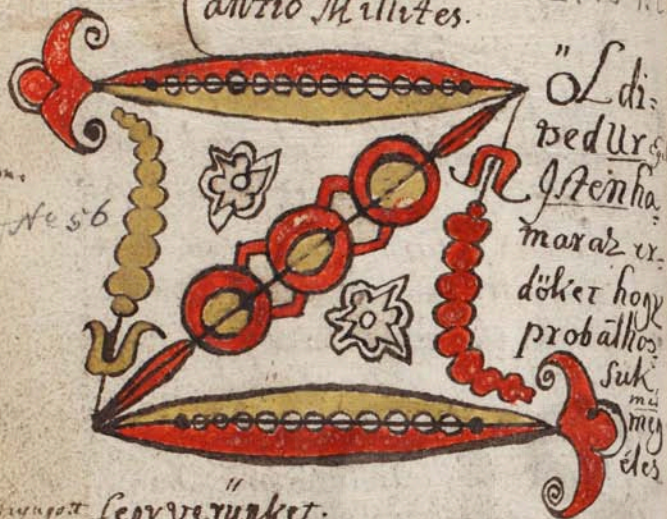 antio Millites.
Z
"Öldi:
ped Ur
Isten ha
maraz er.
döket hogy
probálhos
suk
mi
meg
éles
No 56
fegyverünket.